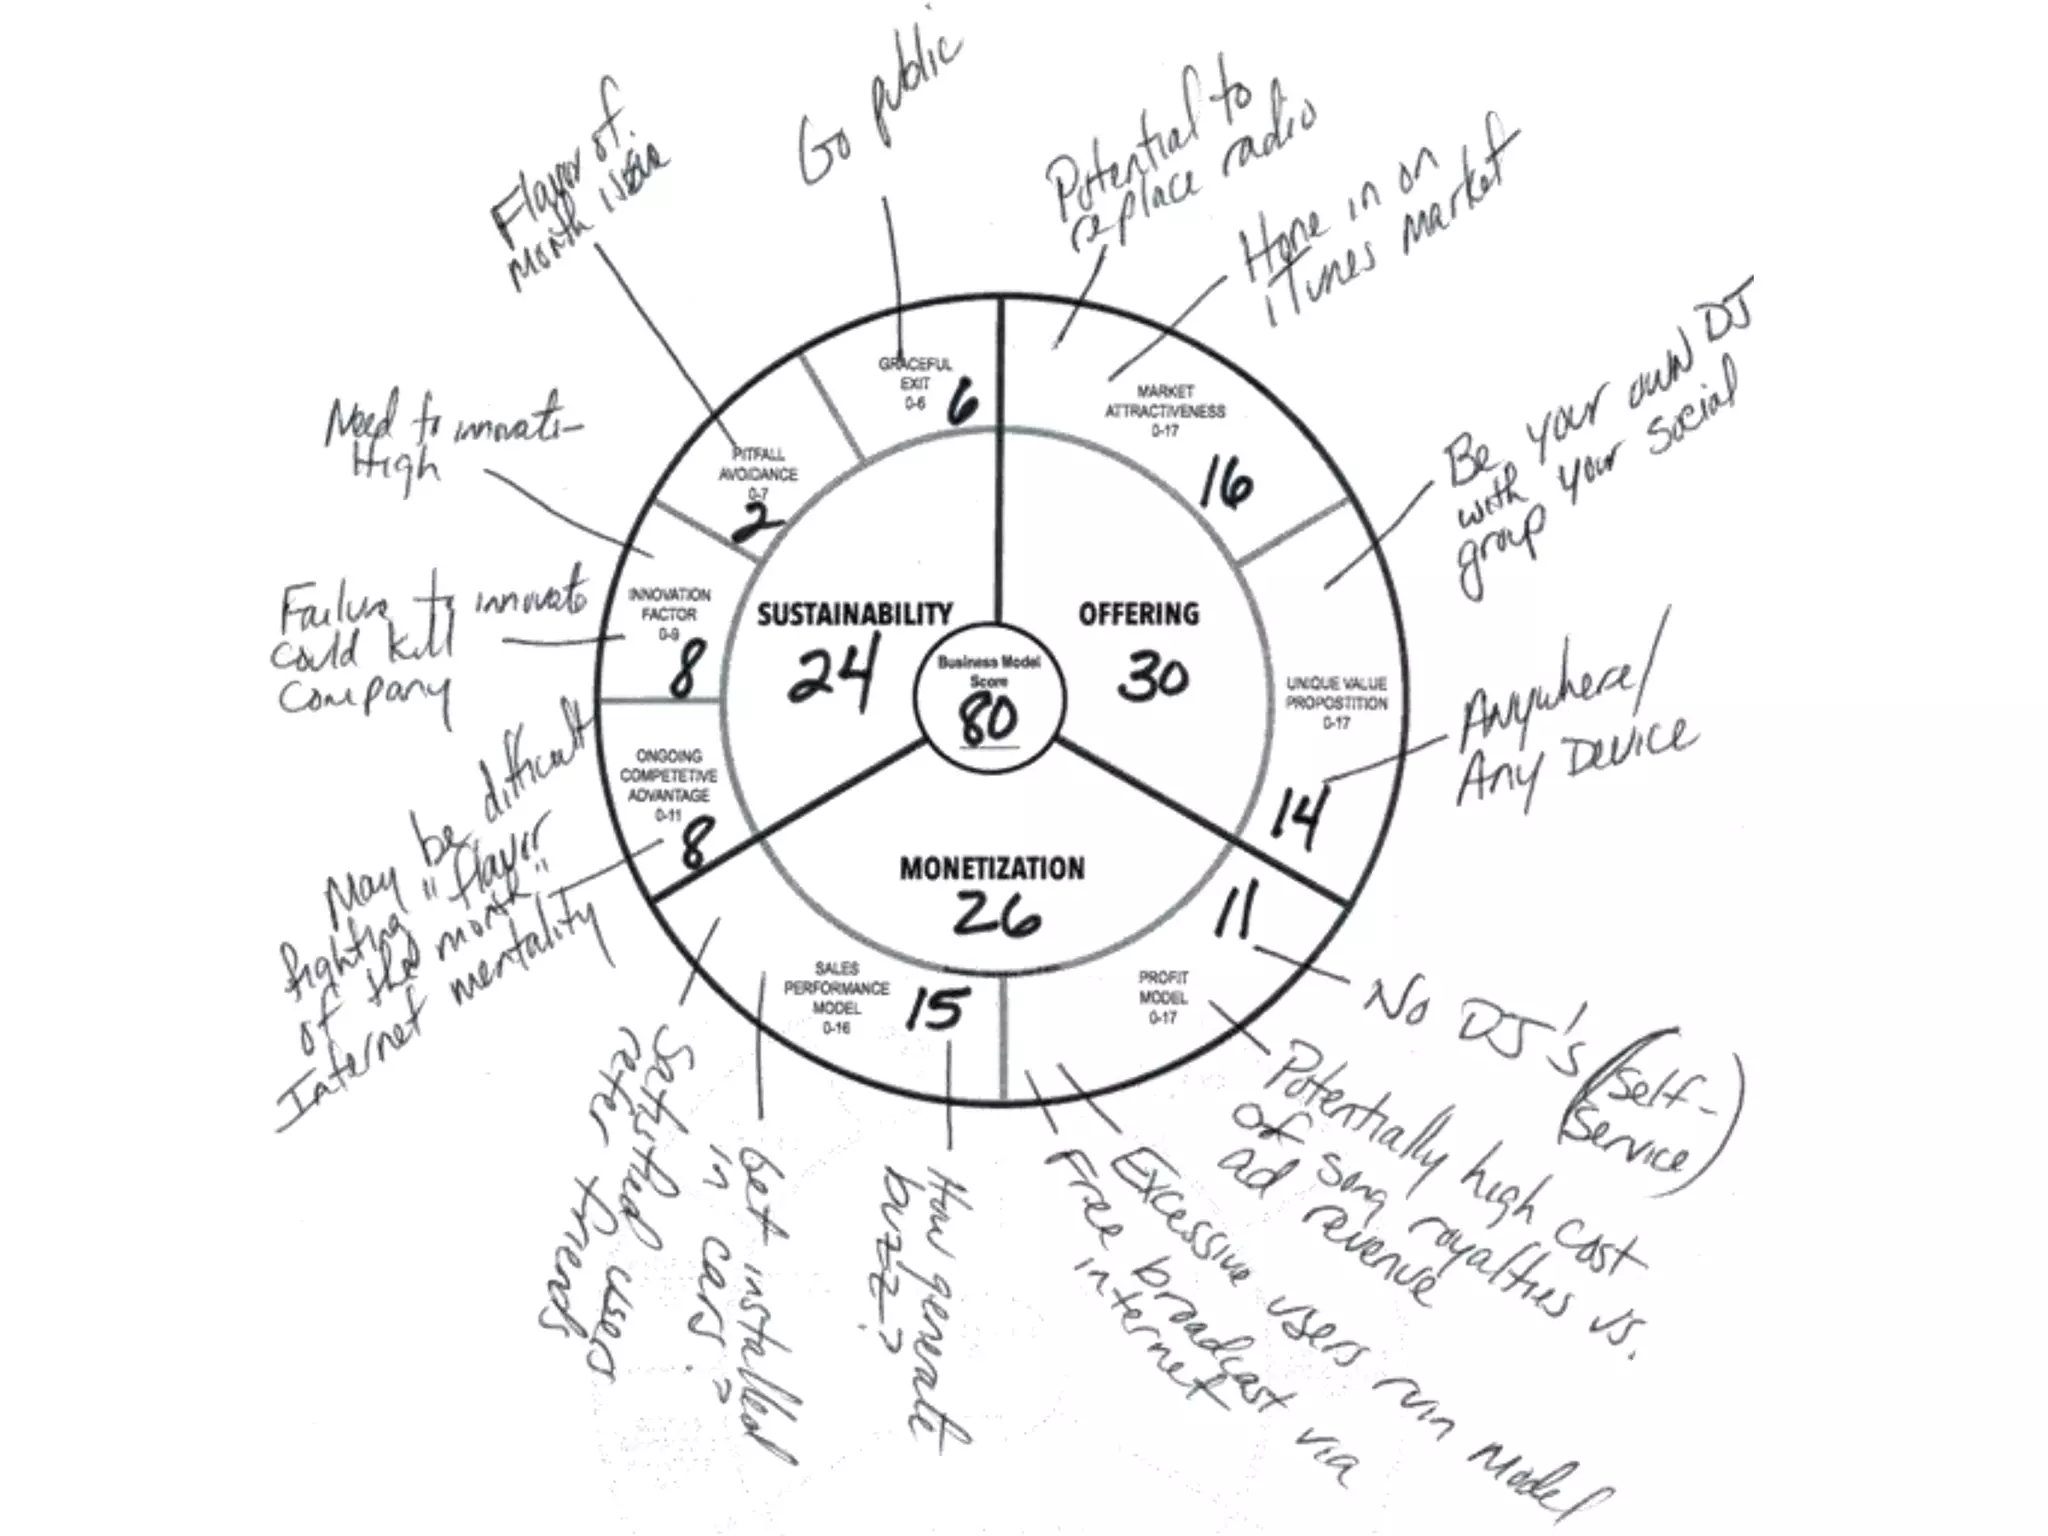 Go public
Flavor of
month issue
Potential to
replace radio
Hone in on
iTunes market
Be your own DJ
with your social
group
Need to innovate -
High
Failure to innovate
could kill
company
Anywhere/
Any Device
May be difficult
fighting "flavor
of the month"
Internet mentality
GRACEFUL
EXIT
0-6
6
MARKET
ATTRACTIVENESS
0-17
16
PITFALL
AVOIDANCE
0-7
2
INNOVATION
FACTOR
0-9
8
SUSTAINABILITY
24
OFFERING
30
Business Model
Score
80
UNIQUE VALUE
PROPOSTITION
0-17
14
ONGOING
COMPETETIVE
ADVANTAGE
0-11
8
MONETIZATION
26
SALES
PERFORMANCE
MODEL
0-16
15
PROFIT
MODEL
0-17
11
No DJ's (Self-
Service)
Potentially high cost
of song royalties vs.
ad revenue
Excessive users ruin model
Free broadcast via
internet
How generate
buzz?
Get installed
in cars?
Satisfied users
refer friends